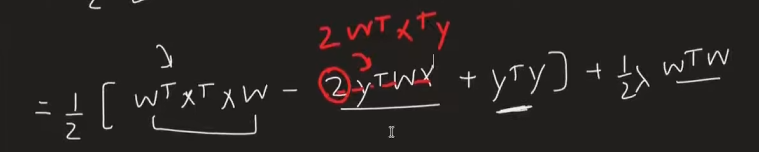 2 W^T X^T y
= 1/2 [ W^T X^T X W - 2 y^T W X + y^T y ] + 1/2 λ W^T W